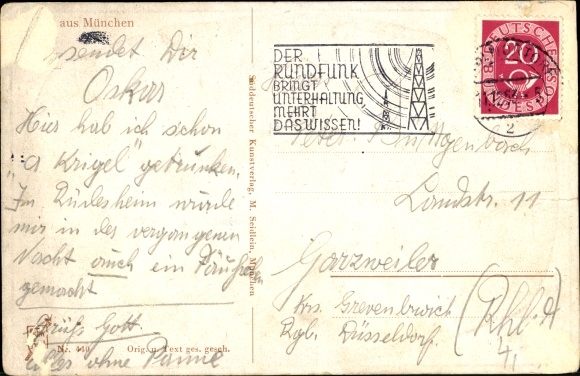 aus München
sendet Dir
Oskar
Hier hab ich schon
"a Krügel" getrunken,
"Im Rüdesheim wurde
mir in des vergangenen
Nacht auch ein Päuschen
gemacht
Grüß Gott.
alles ohne Panne
Nr. 440 Orig. u. Text ges. gesch.
Süddeutscher Kunstverlag, M. Seidlein, München
DER
RUNDFUNK
BRINGT
UNTERHALTUNG
MEHRT
DAS WISSEN!
DEUTSCHE
BUNDESPOST
20
2
Peter
Landstr. 11
Garzweiler
Krs. Grevenbroich (Rhld)
Rgb. Düsseldorf.